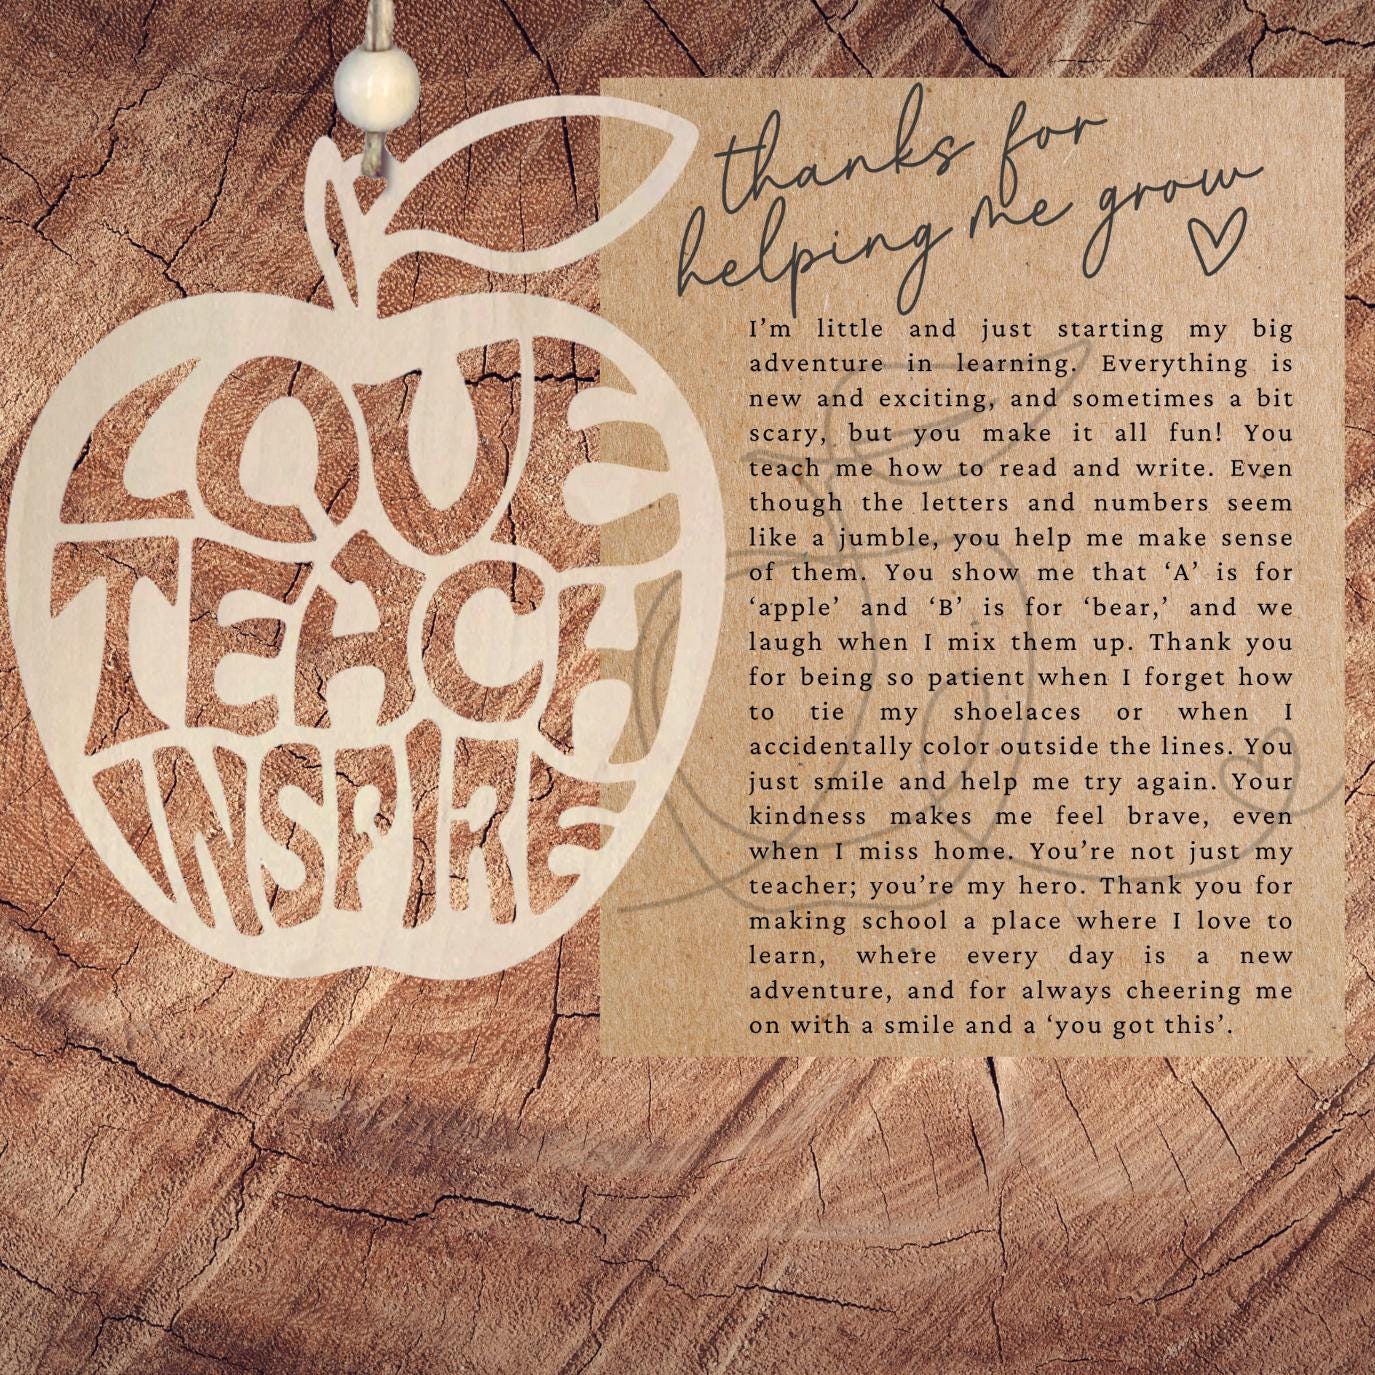 LOVE
TEACH
INSPIRE
thanks for
helping me grow
I’m little and just starting my big
adventure in learning. Everything is
new and exciting, and sometimes a bit
scary, but you make it all fun! You
teach me how to read and write. Even
though the letters and numbers seem
like a jumble, you help me make sense
of them. You show me that ‘A’ is for
‘apple’ and ‘B’ is for ‘bear,’ and we
laugh when I mix them up. Thank you
for being so patient when I forget how
to tie my shoelaces or when I
accidentally color outside the lines. You
just smile and help me try again. Your
kindness makes me feel brave, even
when I miss home. You’re not just my
teacher; you’re my hero. Thank you for
making school a place where I love to
learn, where every day is a new
adventure, and for always cheering me
on with a smile and a ‘you got this’.